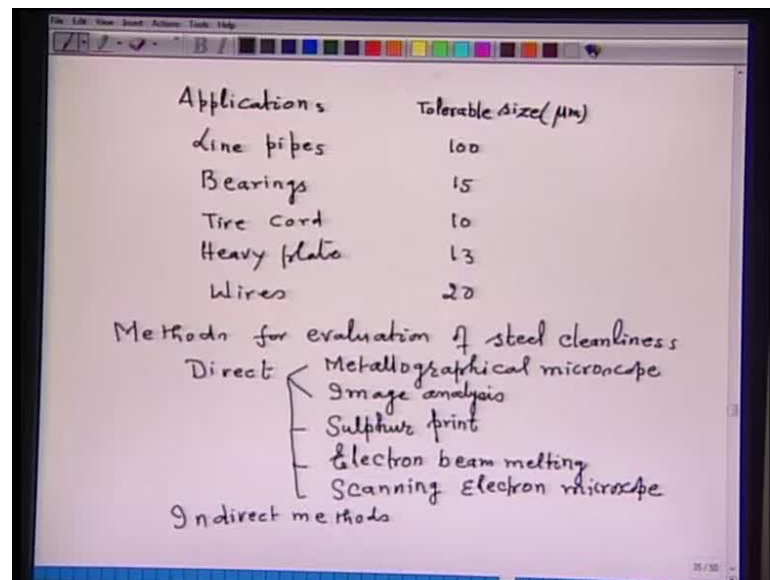 File Edit View Insert Actions Tools Help
Applications Tolerable size (μm)
Line pipes 100
Bearings 15
Tire Cord 10
Heavy plate 13
Wires 20
Methods for evaluation of steel cleanliness
Direct Metallographical microscope
Image analysis
Sulphur print
Electron beam melting
Scanning Electron microscope
Indirect methods
35 / 50